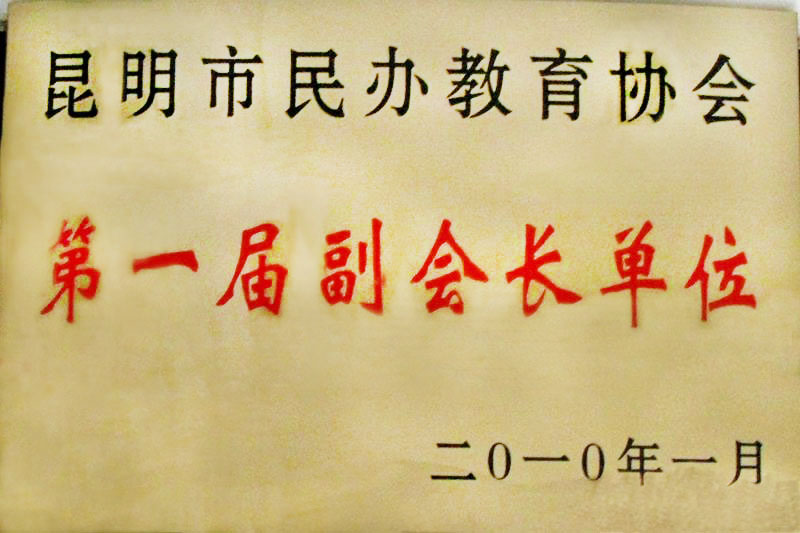 昆明市民办教育协会
第一届副会长单位
二0一0年一月